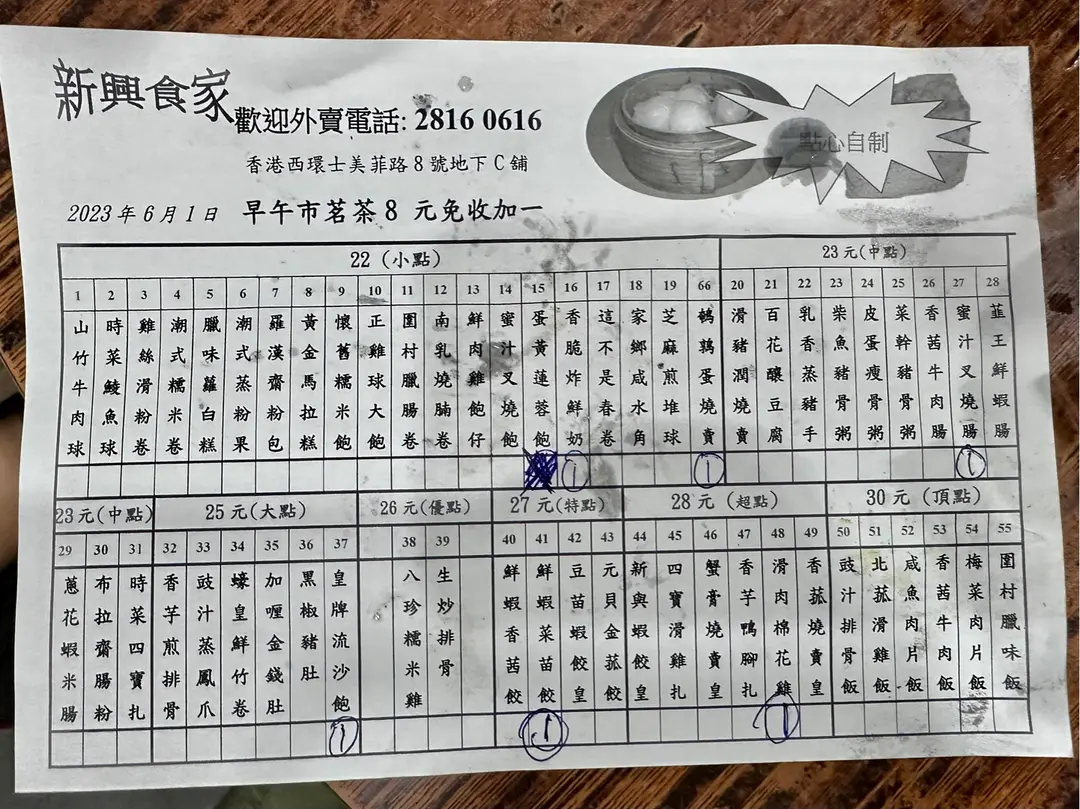 新興食家
歡迎外賣電話: 2816 0616
香港西環士美菲路8號地下C舖
點心自制
2023年6月1日 早午市茗茶8 元免收加一
22 (小點)
1 山竹牛肉球
2 時菜鯪魚球
3 雞絲滑粉卷
4 潮式糯米卷
5 臘味蘿白糕
6 潮式蒸粉果
7 羅漢齋粉包
8 黃金馬拉糕
9 懷舊糯米飽
10 正雞球大飽
11 圍村臘腸卷
12 南乳燒腩卷
13 鮮肉雞飽仔
14 蜜汁叉燒飽
15 蛋黃蓮蓉飽
16 香脆炸鮮奶 1
17 這不是春卷
18 家鄉咸水角
19 芝麻煎堆球
66 鵪鶉蛋燒賣 1
23元(中點)
20 滑豬潤燒賣
21 百花釀豆腐
22 乳香蒸豬手
23 柴魚豬骨粥
24 皮蛋瘦骨粥
25 菜幹豬骨粥
26 香茜牛肉腸
27 蜜汁叉燒腸 1
28 韮王鮮蝦腸
23元(中點)
29 蔥花蝦米腸
30 布拉齋腸粉
31 時菜四寶扎
25元(大點)
32 香芋煎排骨
33 豉汁蒸鳳爪
34 蠔皇鮮竹卷
35 加喱金錢肚
36 黑椒豬肚
37 皇牌流沙飽 1
26元(優點)
38 八珍糯米雞
39 生炒排骨
27元(特點)
40 鮮蝦香茜餃
41 鮮蝦菜苗餃 1
42 豆苗蝦餃皇
43 元貝金菰餃
28元 (超點)
44 新興蝦餃皇
45 四寶滑雞扎
46 蟹膏燒賣皇
47 香芋鴨腳扎
48 滑肉棉花雞 1
49 香菰燒賣皇
30元 (頂點)
50 豉汁排骨飯
51 北菰滑雞飯
52 咸魚肉片飯
53 香茜牛肉飯
54 梅菜肉片飯
55 圍村臘味飯